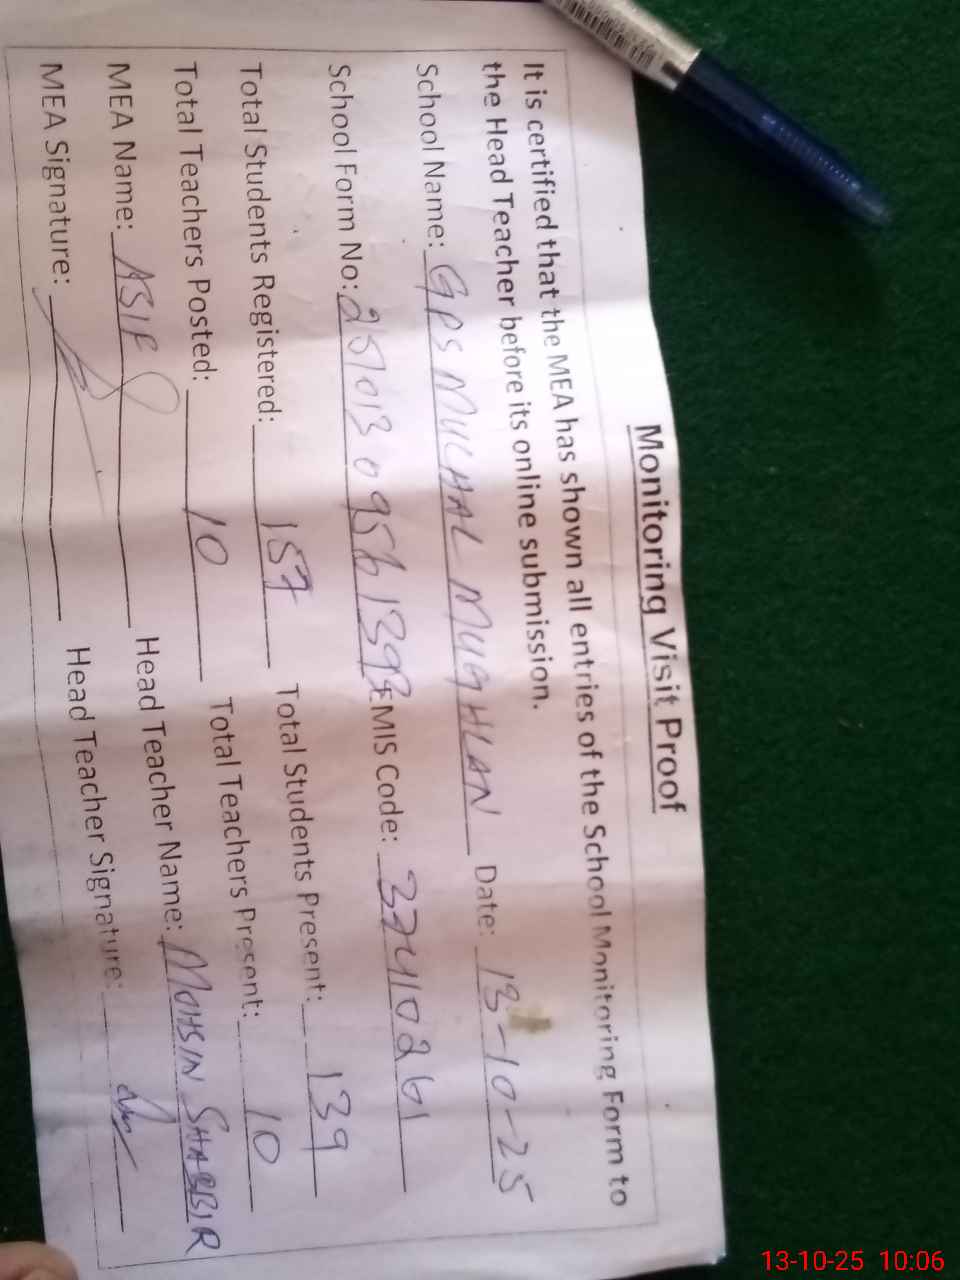 Monitoring Visit Proof
It is certified that the MEA has shown all entries of the School Monitoring Form to
the Head Teacher before its online submission.
School Name: GPS MUCHAL MUGHLAN Date: 13-10-25
School Form No: EMIS Code: 37410261
Total Students Registered: 157 Total Students Present: 139
Total Teachers Posted: 10 Total Teachers Present: 10
MEA Name: ASIF Head Teacher Name: MOHSIN SHABBIR
MEA Signature: Head Teacher Signature:
13-10-25 10:06